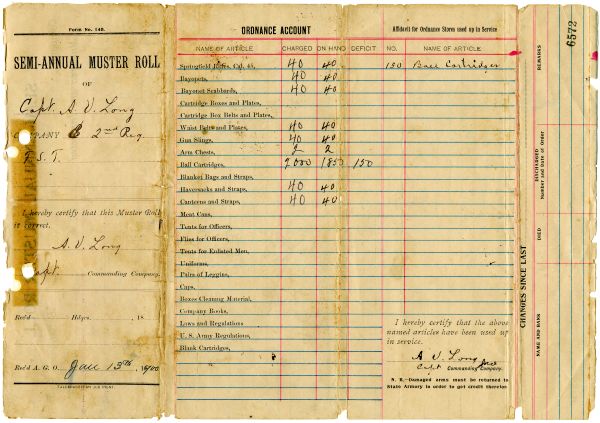 Form No. 140.
SEMI-ANNUAL MUSTER ROLL
OF
Capt. A. V. Long
COMPANY 2nd Reg
F. S. T.
I hereby certify that this Muster Roll
is correct.
A. V. Long
Capt. Commanding Company.
Rec'd Hdqrs. 18
Rec'd A. G. O. Jan 13th 1900
ORDNANCE ACCOUNT
NAME OF ARTICLE CHARGED ON HAND DEFICIT
Springfield Rifles, Cal. 45, 40 40
Bayonets, 40 40
Bayonet Scabbards, 40 40
Cartridge Boxes and Plates,
Cartridge Box Belts and Plates,
Waist Belts and Plates, 40 40
Gun Slings, 40 40
Arm Chests, 2 2
Ball Cartridges, 2000 1850 150
Blanket Bags and Straps,
Haversacks and Straps, 40 40
Canteens and Straps, 40 40
Meat Cans,
Tents for Officers,
Flies for Officers,
Tents for Enlisted Men,
Uniforms,
Pairs of Leggins,
Caps,
Boxes Cleaning Material,
Company Books,
Laws and Regulations
U. S. Army Regulations,
Blank Cartridges,
Affidavit for Ordnance Stores used up in Service
NO. NAME OF ARTICLE
150 Ball Cartridges
I hereby certify that the above
named articles have been used up
in service.
A. V. Long
Capt Commanding Company.
N. B.—Damaged arms must be returned to
State Armory in order to get credit therefor.
CHANGES SINCE LAST
REMARKS
DISCHARGED
Number and Date of Order
DIED
NAME AND RANK
6572